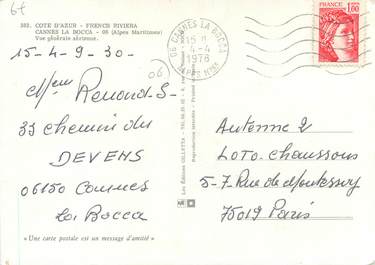 6f
502. COTE D'AZUR - FRENCH RIVIERA
CANNES LA BOCCA - 06 (Alpes Maritimes)
Vue générale aérienne.
15-4-9-30-
06
Mme Renond-S-
33 chemin des
DEVENS
06150 Cannes
La Bocca
« Une carte postale est un message d'amitié »
Les Editions GILLETTA
Reproduction interdite
06 CANNES LA BOCCA
15 H
4-4
1978
ALPES MMES
FRANCE
1,00
Antenne 2
LOTO-chaussons
5-7 Rue de Montessuy
75019 Paris